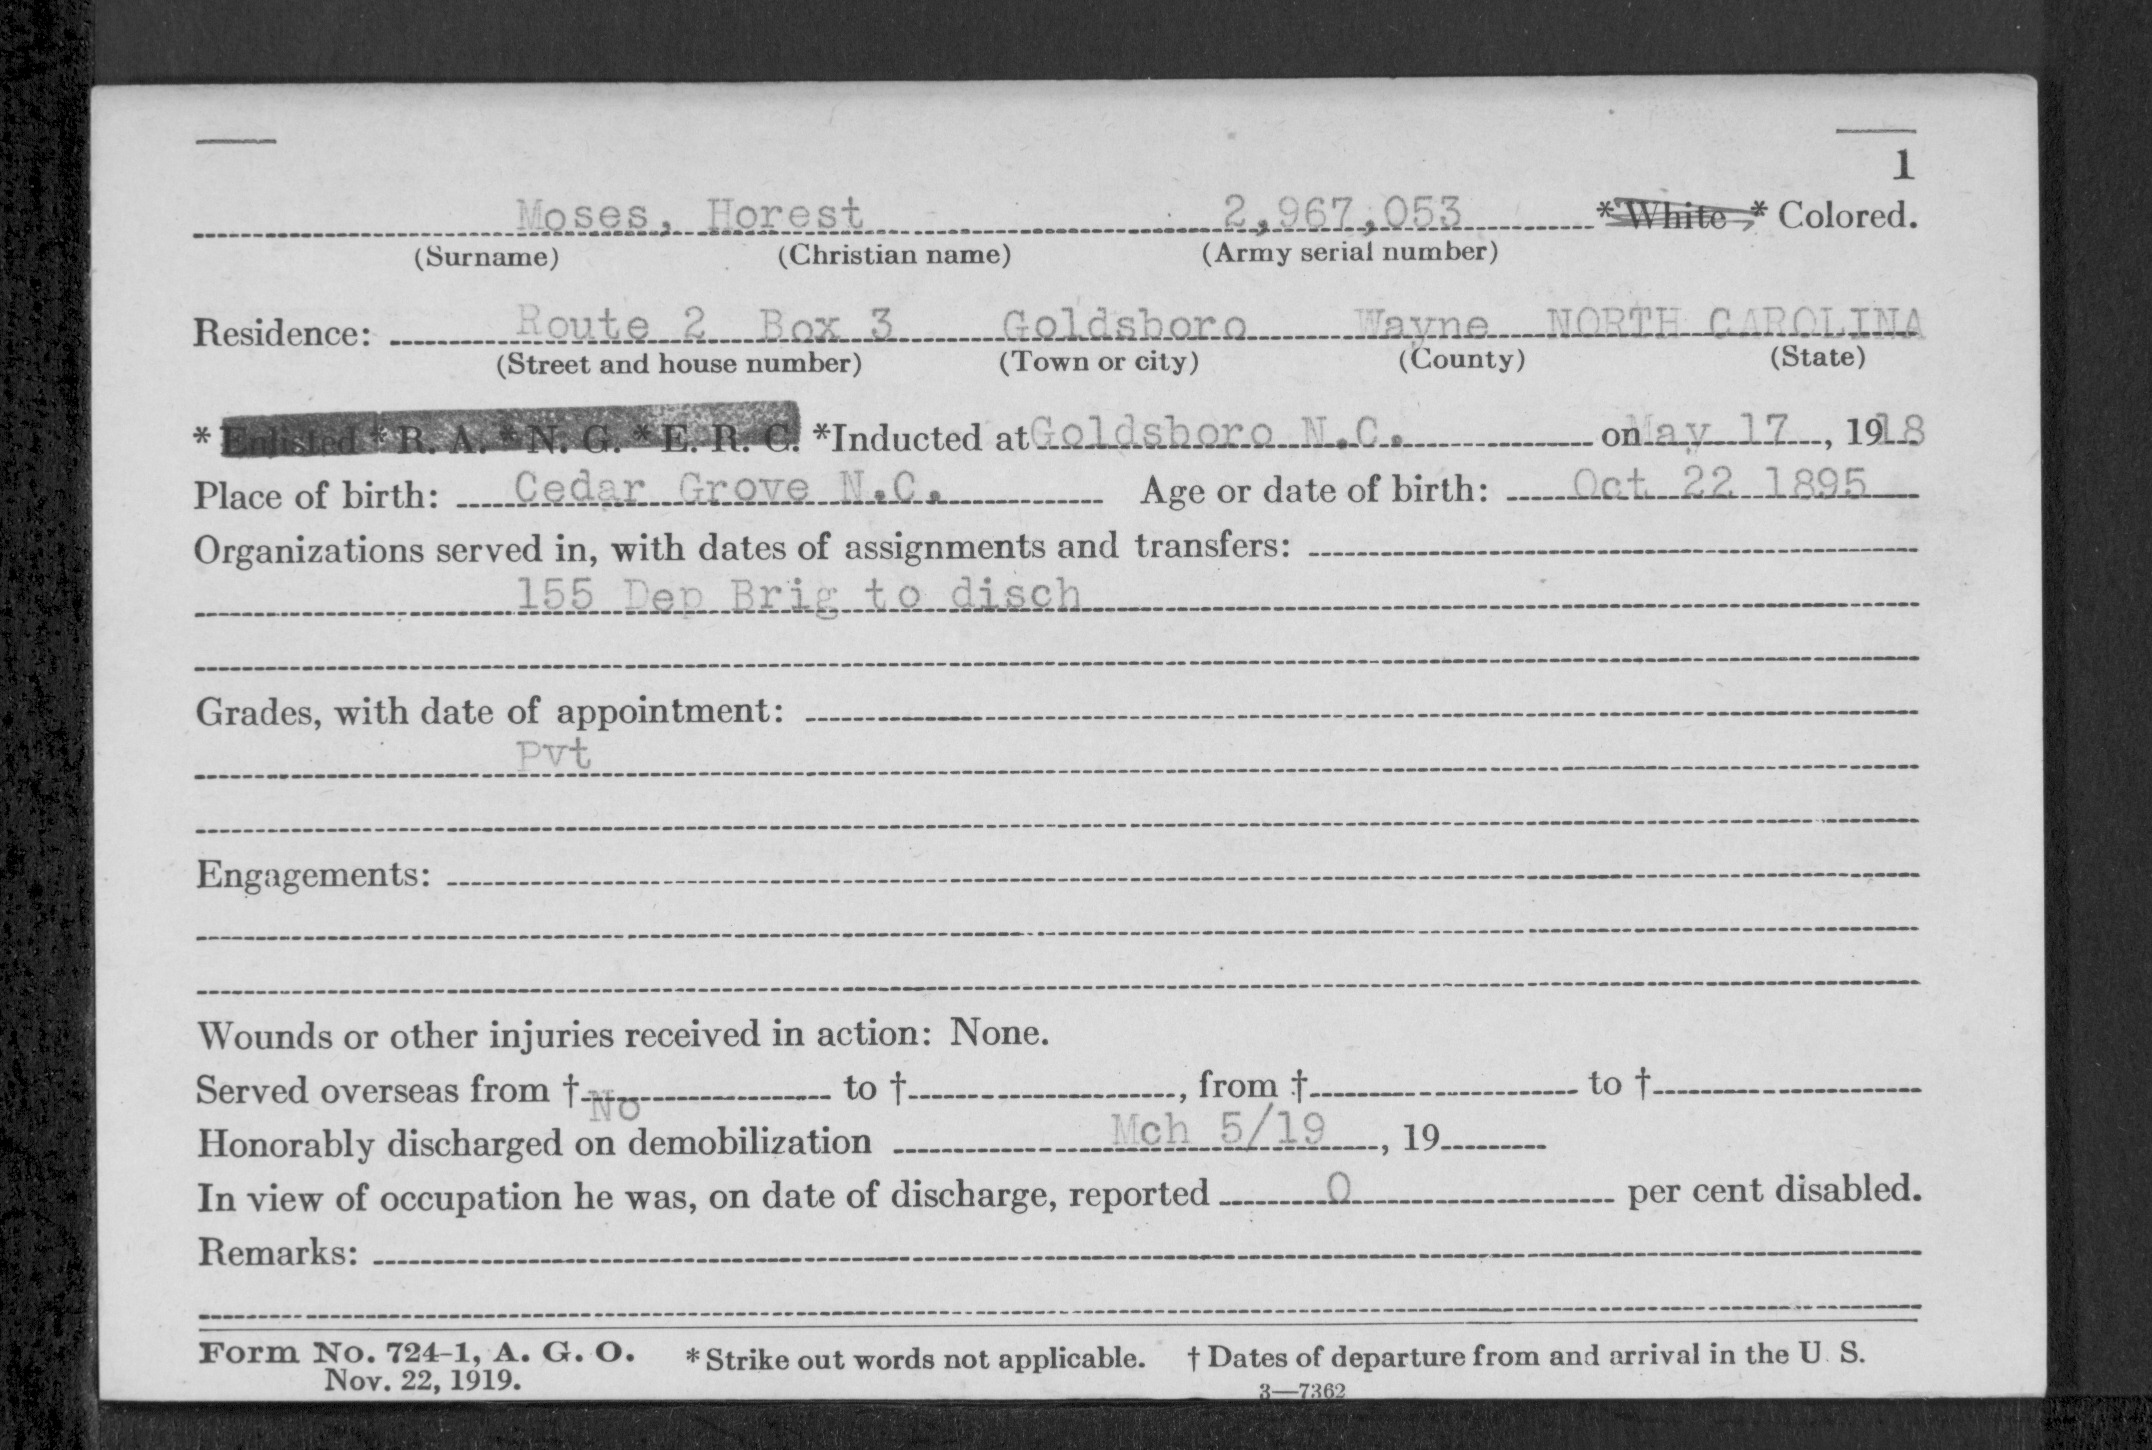 1
Moses, Horest 2,967,053 *White * Colored.
(Surname) (Christian name) (Army serial number)
Residence: Route 2 Box 3 Goldsboro Wayne NORTH CAROLINA
(Street and house number) (Town or city) (County) (State)
*Enlisted *R. A. *N. G. *E. R. C. *Inducted at Goldsboro N.C. on May 17, 1918
Place of birth: Cedar Grove N.C. Age or date of birth: Oct 22 1895
Organizations served in, with dates of assignments and transfers:
155 Dep Brig to disch
Grades, with date of appointment:
Pvt
Engagements:
Wounds or other injuries received in action: None.
Served overseas from † No to †, from † to †
Honorably discharged on demobilization Mch 5/19, 19
In view of occupation he was, on date of discharge, reported 0 per cent disabled.
Remarks:
Form No. 724-1, A. G. O. *Strike out words not applicable. † Dates of departure from and arrival in the U. S.
Nov. 22, 1919. 3—7362